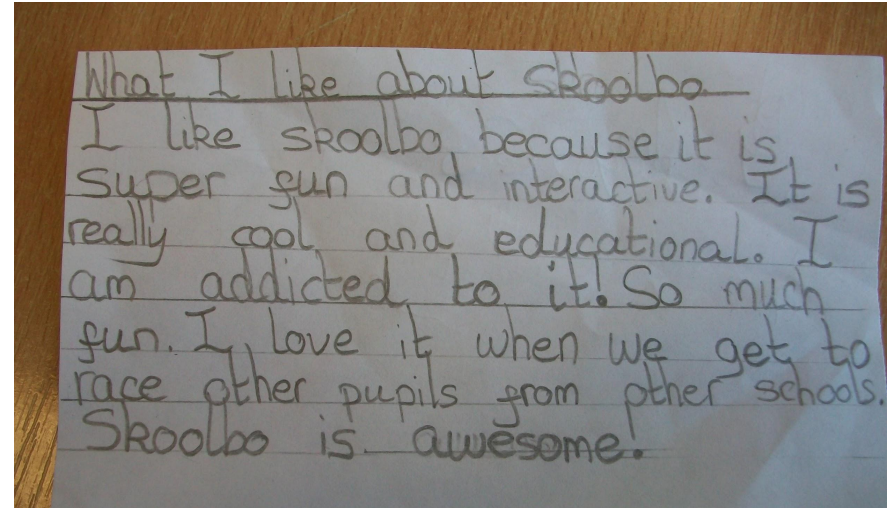 What I like about Skoolbo
I like skoolbo because it is
super fun and interactive. It is
really cool and educational. I
am addicted to it! So much
fun. I love it when we get to
race other pupils from other schools.
Skoolbo is awesome!